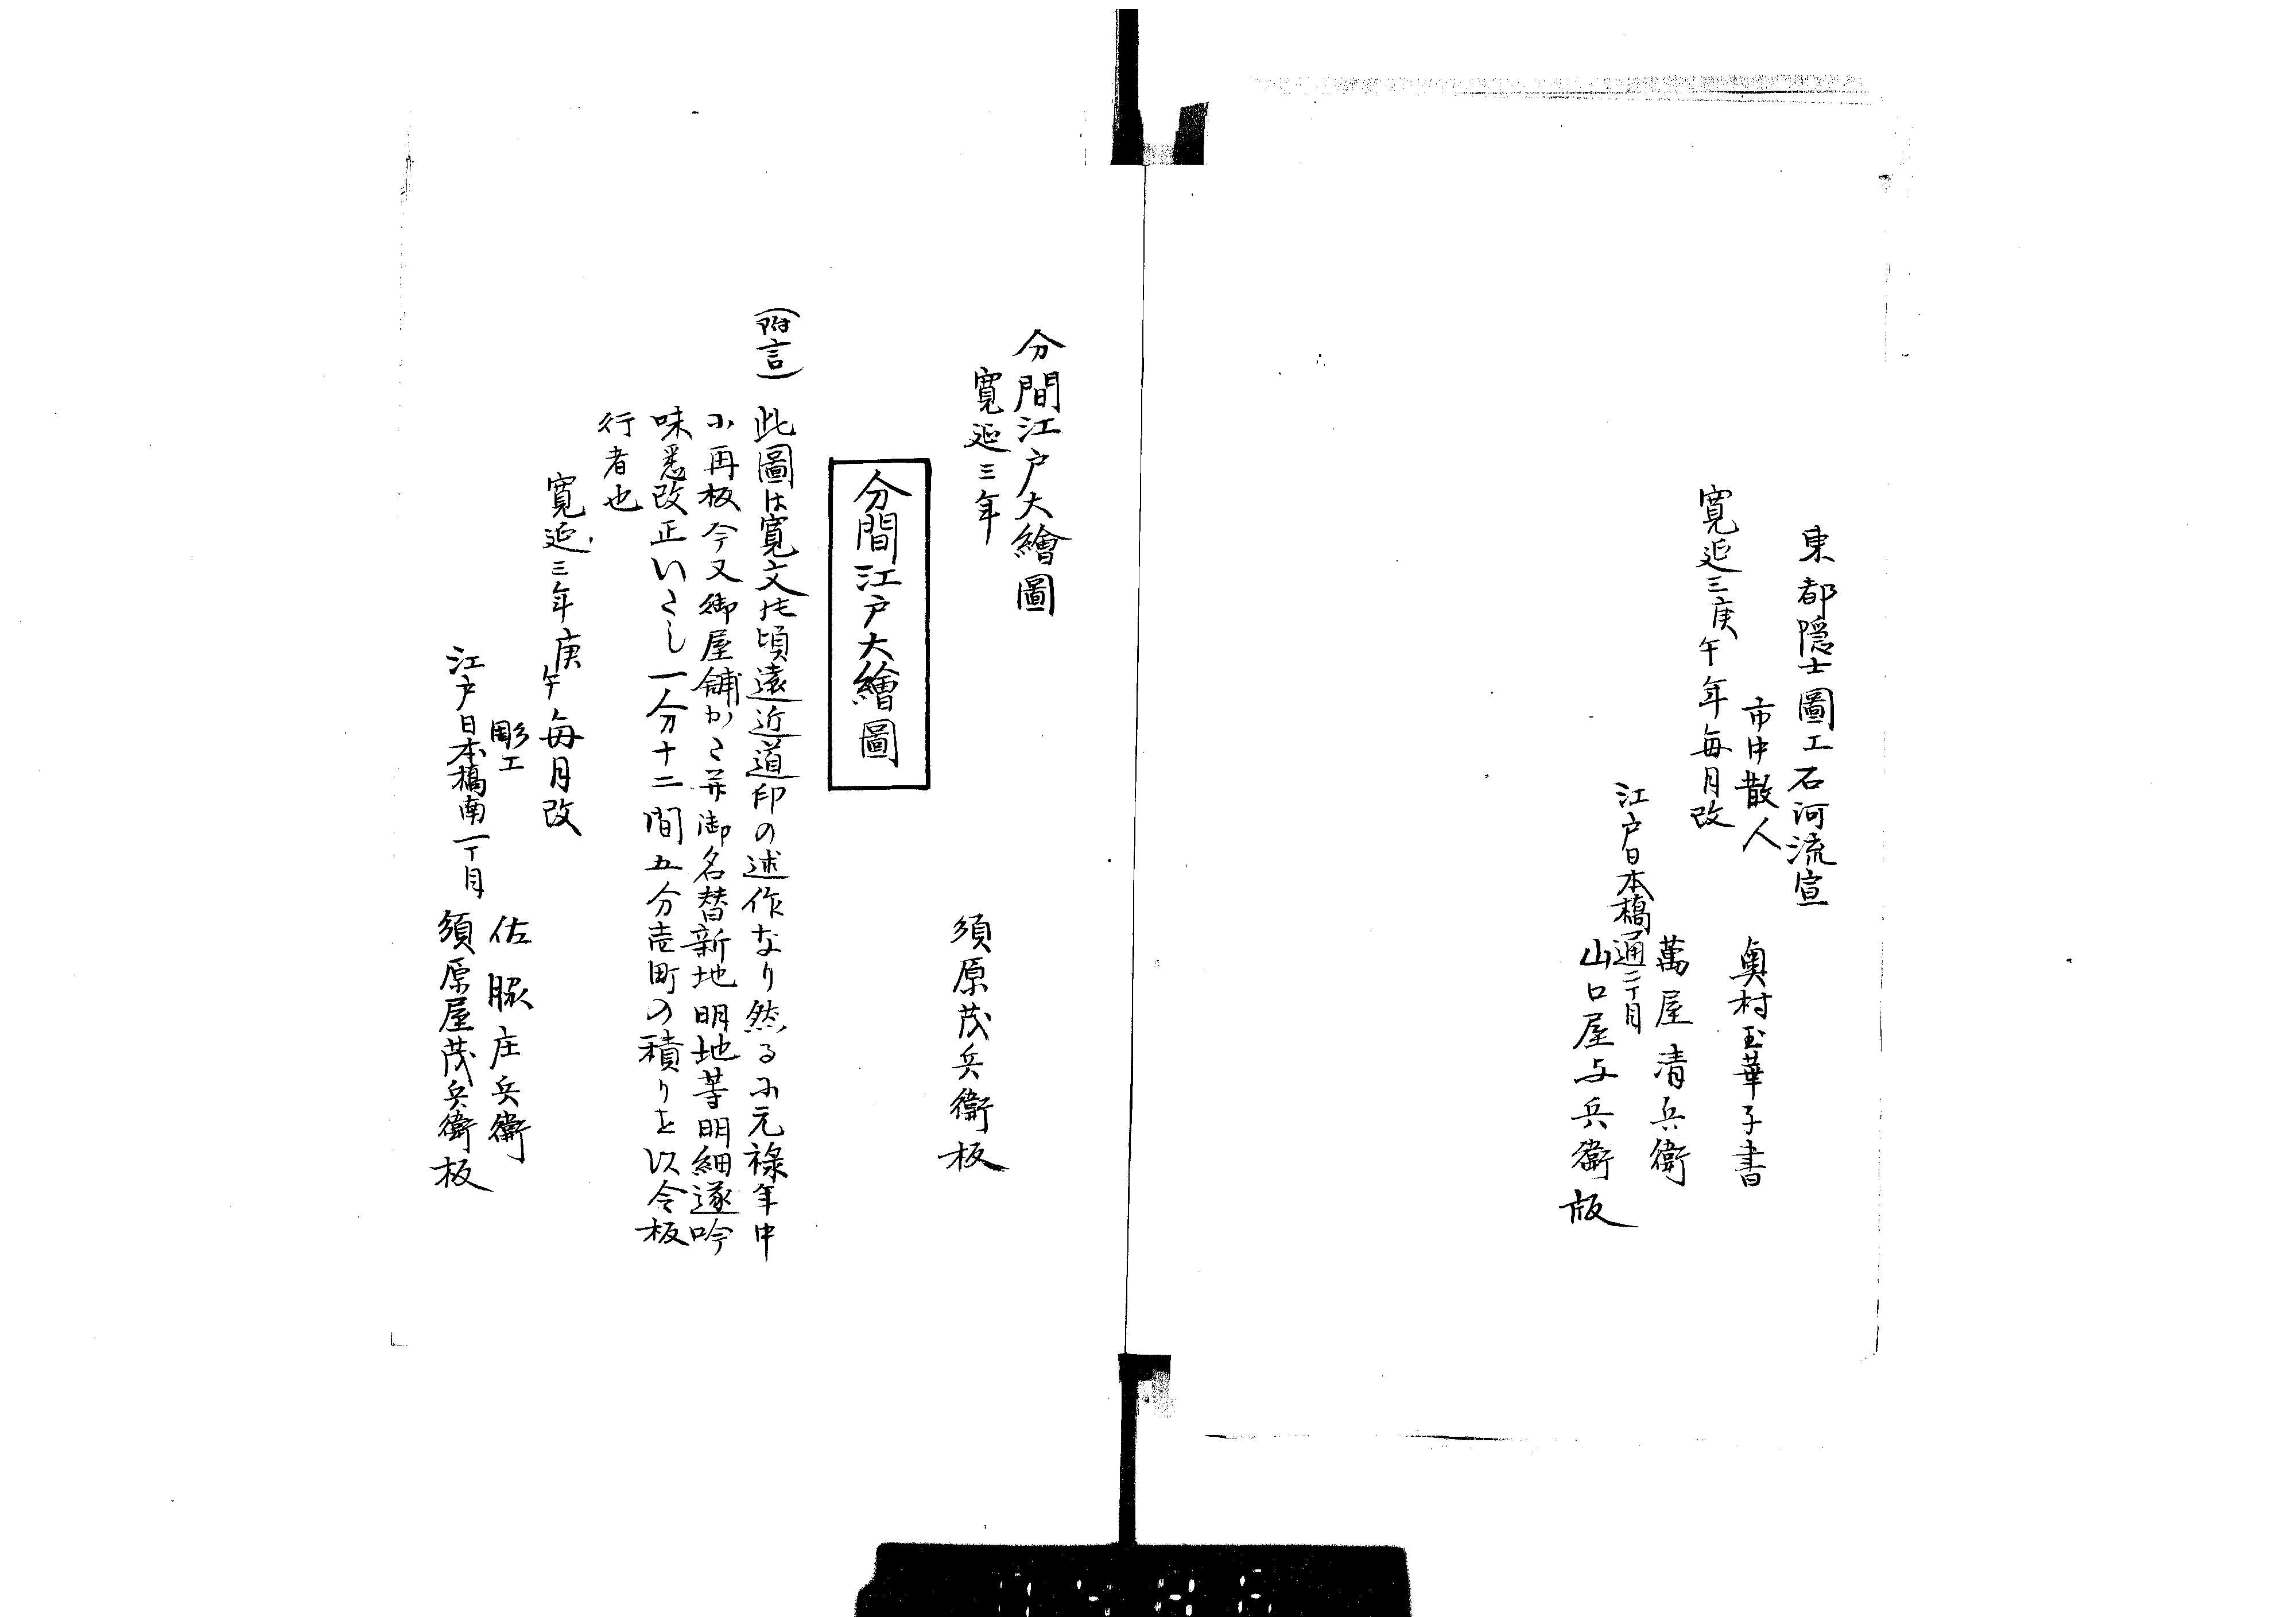 東都隠士圖工石河流宣
市中散人　奥村玉華子書
寛延三庚午年毎月改
萬屋清兵衛
江戸日本橋通二丁目
山口屋与兵衛版
分間江戸大繪圖
寛延三年
須原茂兵衛板
分間江戸大繪圖
(附言)此圖は寛文比頃遠近道印の述作なり然るに元禄年中
に再板今又御屋舗かた并御名替新地明地等明細遂吟
味悉改正いたし一分十二間五分壱町の積りを以令板
行者也
寛延三年庚午毎月改
彫工　佐脇庄兵衛
江戸日本橋南一丁目　須原屋茂兵衛板